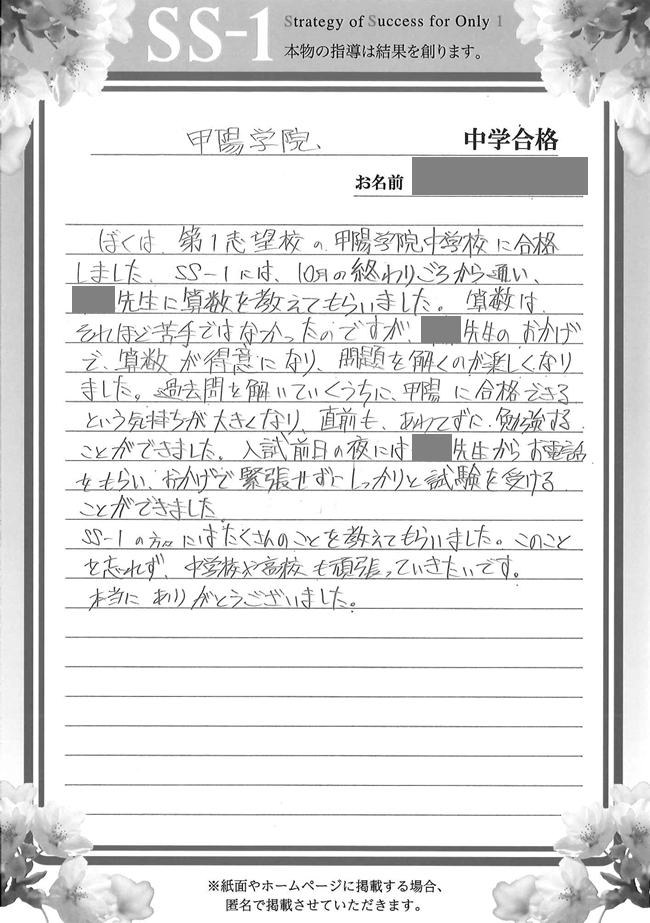 SS-1
Strategy of Success for Only 1
本物の指導は結果を創ります。
甲陽学院、 中学合格
お名前
ぼくは、第1志望校の甲陽学院中学校に合格
しました。SS-1には、10月の終わりごろから通い、
先生に算数を教えてもらいました。算数は、
それほど苦手ではなかったのですが、先生のおかげ
で、算数が得意になり、問題を解くのが楽しくなり
ました。過去問を解いていくうちに、甲陽に合格できる
という気持ちが大きくなり、直前も、あわてずに勉強する
ことができました。入試前日の夜には先生からお電話
をもらい、おかげで緊張せずにしっかりと試験を受ける
ことができました。
SS-1の方々にはたくさんのことを教えてもらいました。このこと
を忘れず、中学校や高校も頑張っていきたいです。
本当にありがとうございました。
※紙面やホームページに掲載する場合、
匿名で掲載させていただきます。